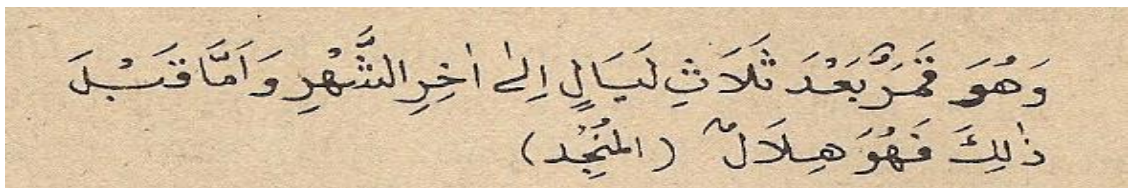 وَهُوَ قَمَرٌ بَعْدَ ثَلَاثِ لَيَالٍ اِلىٰ اٰخِرِ الشَّهْرِ وَاَمَّا قَبْلَ
ذٰلِكَ فَهُوَ هِلَالٌ (المُنْجِد)